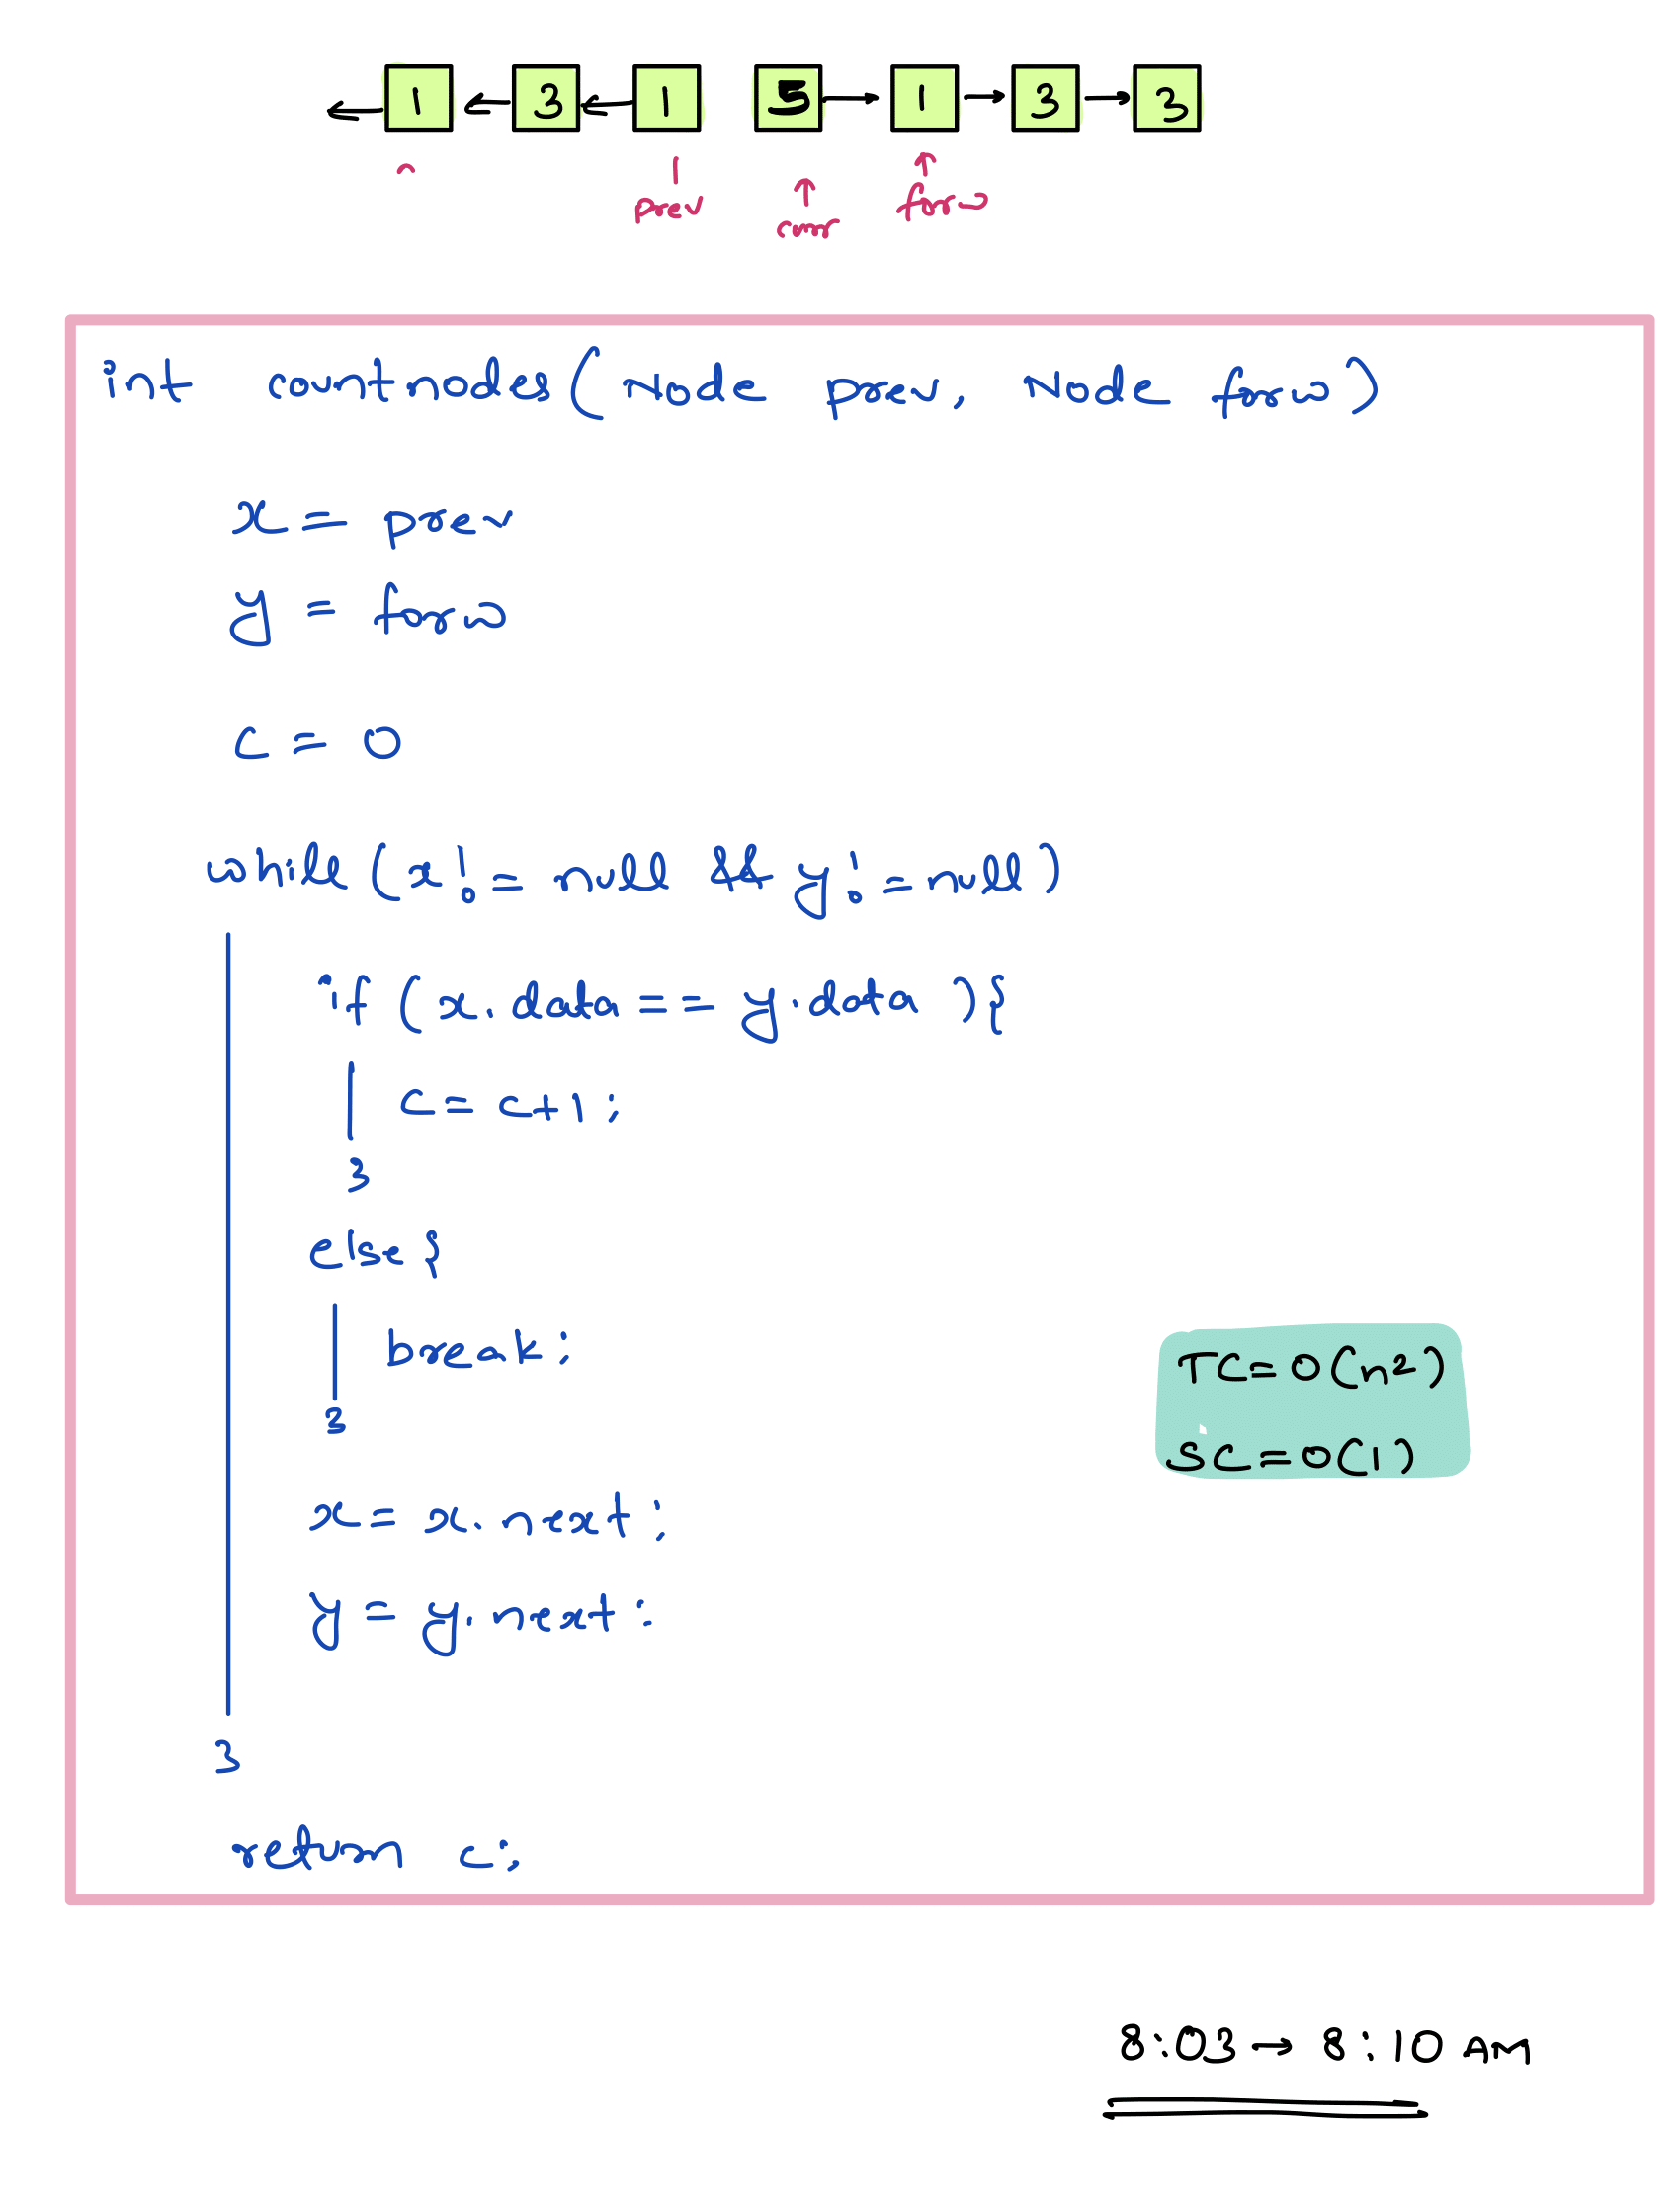 1 3 1 5 1 3 3
prev curr forw
int countnodes(Node prev, Node forw)
x = prev
y = forw
c = 0
while (x != null && y != null)
if (x.data == y.data ){
c = c+1;
}
else {
break;
}
x = x.next;
y = y.next;
}
return c;
TC = O(n²)
SC = O(1)
8:03 → 8:10 AM